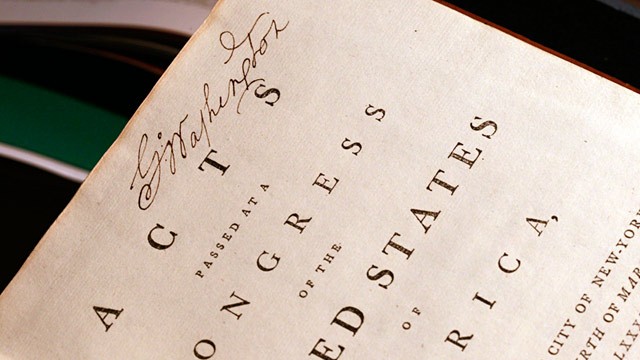 G: Washington
ACTS
PASSED AT A
ONGRESS
OF THE
ED STATES
OF
RICA,
CITY OF NEW-YORK
RTH OF MAR
LXXX